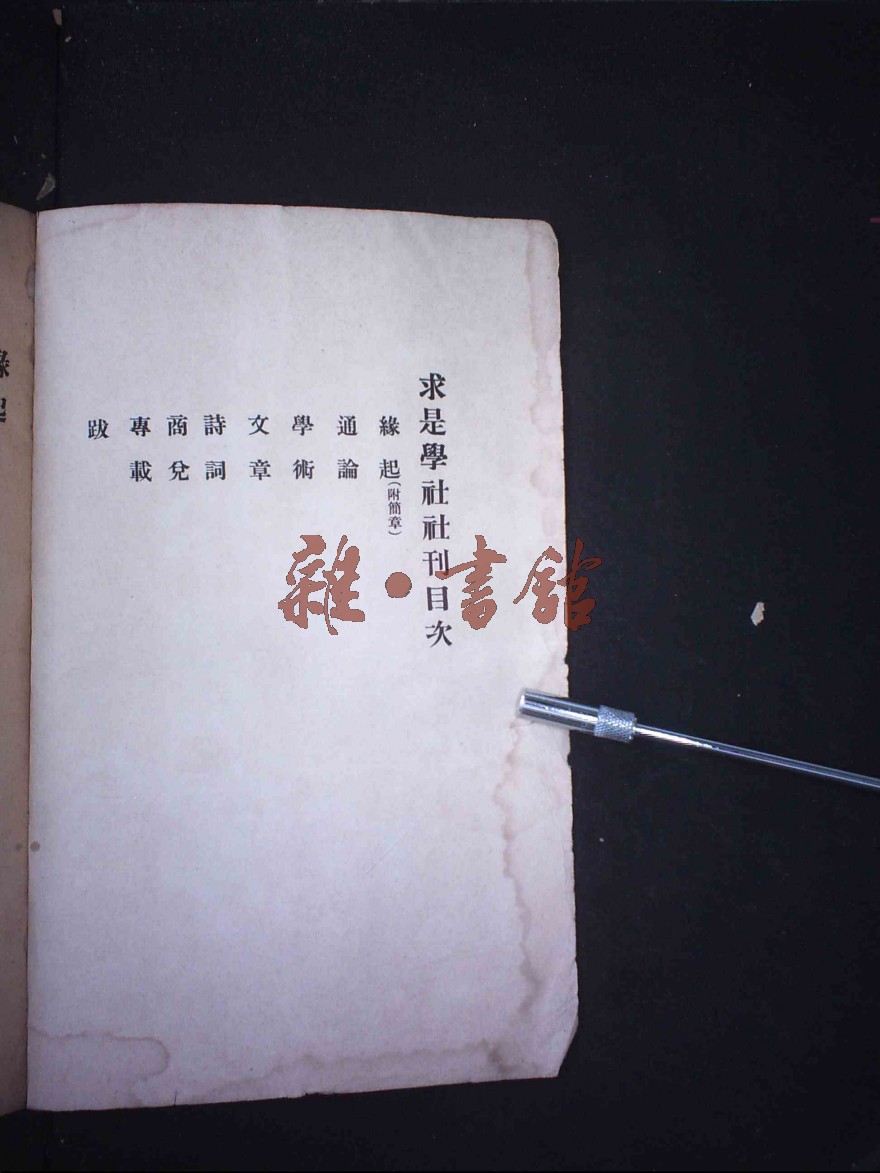 求是學社社刊目次
緣起(附簡章)
通論
學術
文章
詩詞
商兌
專載
跋
緣起
雜·書館